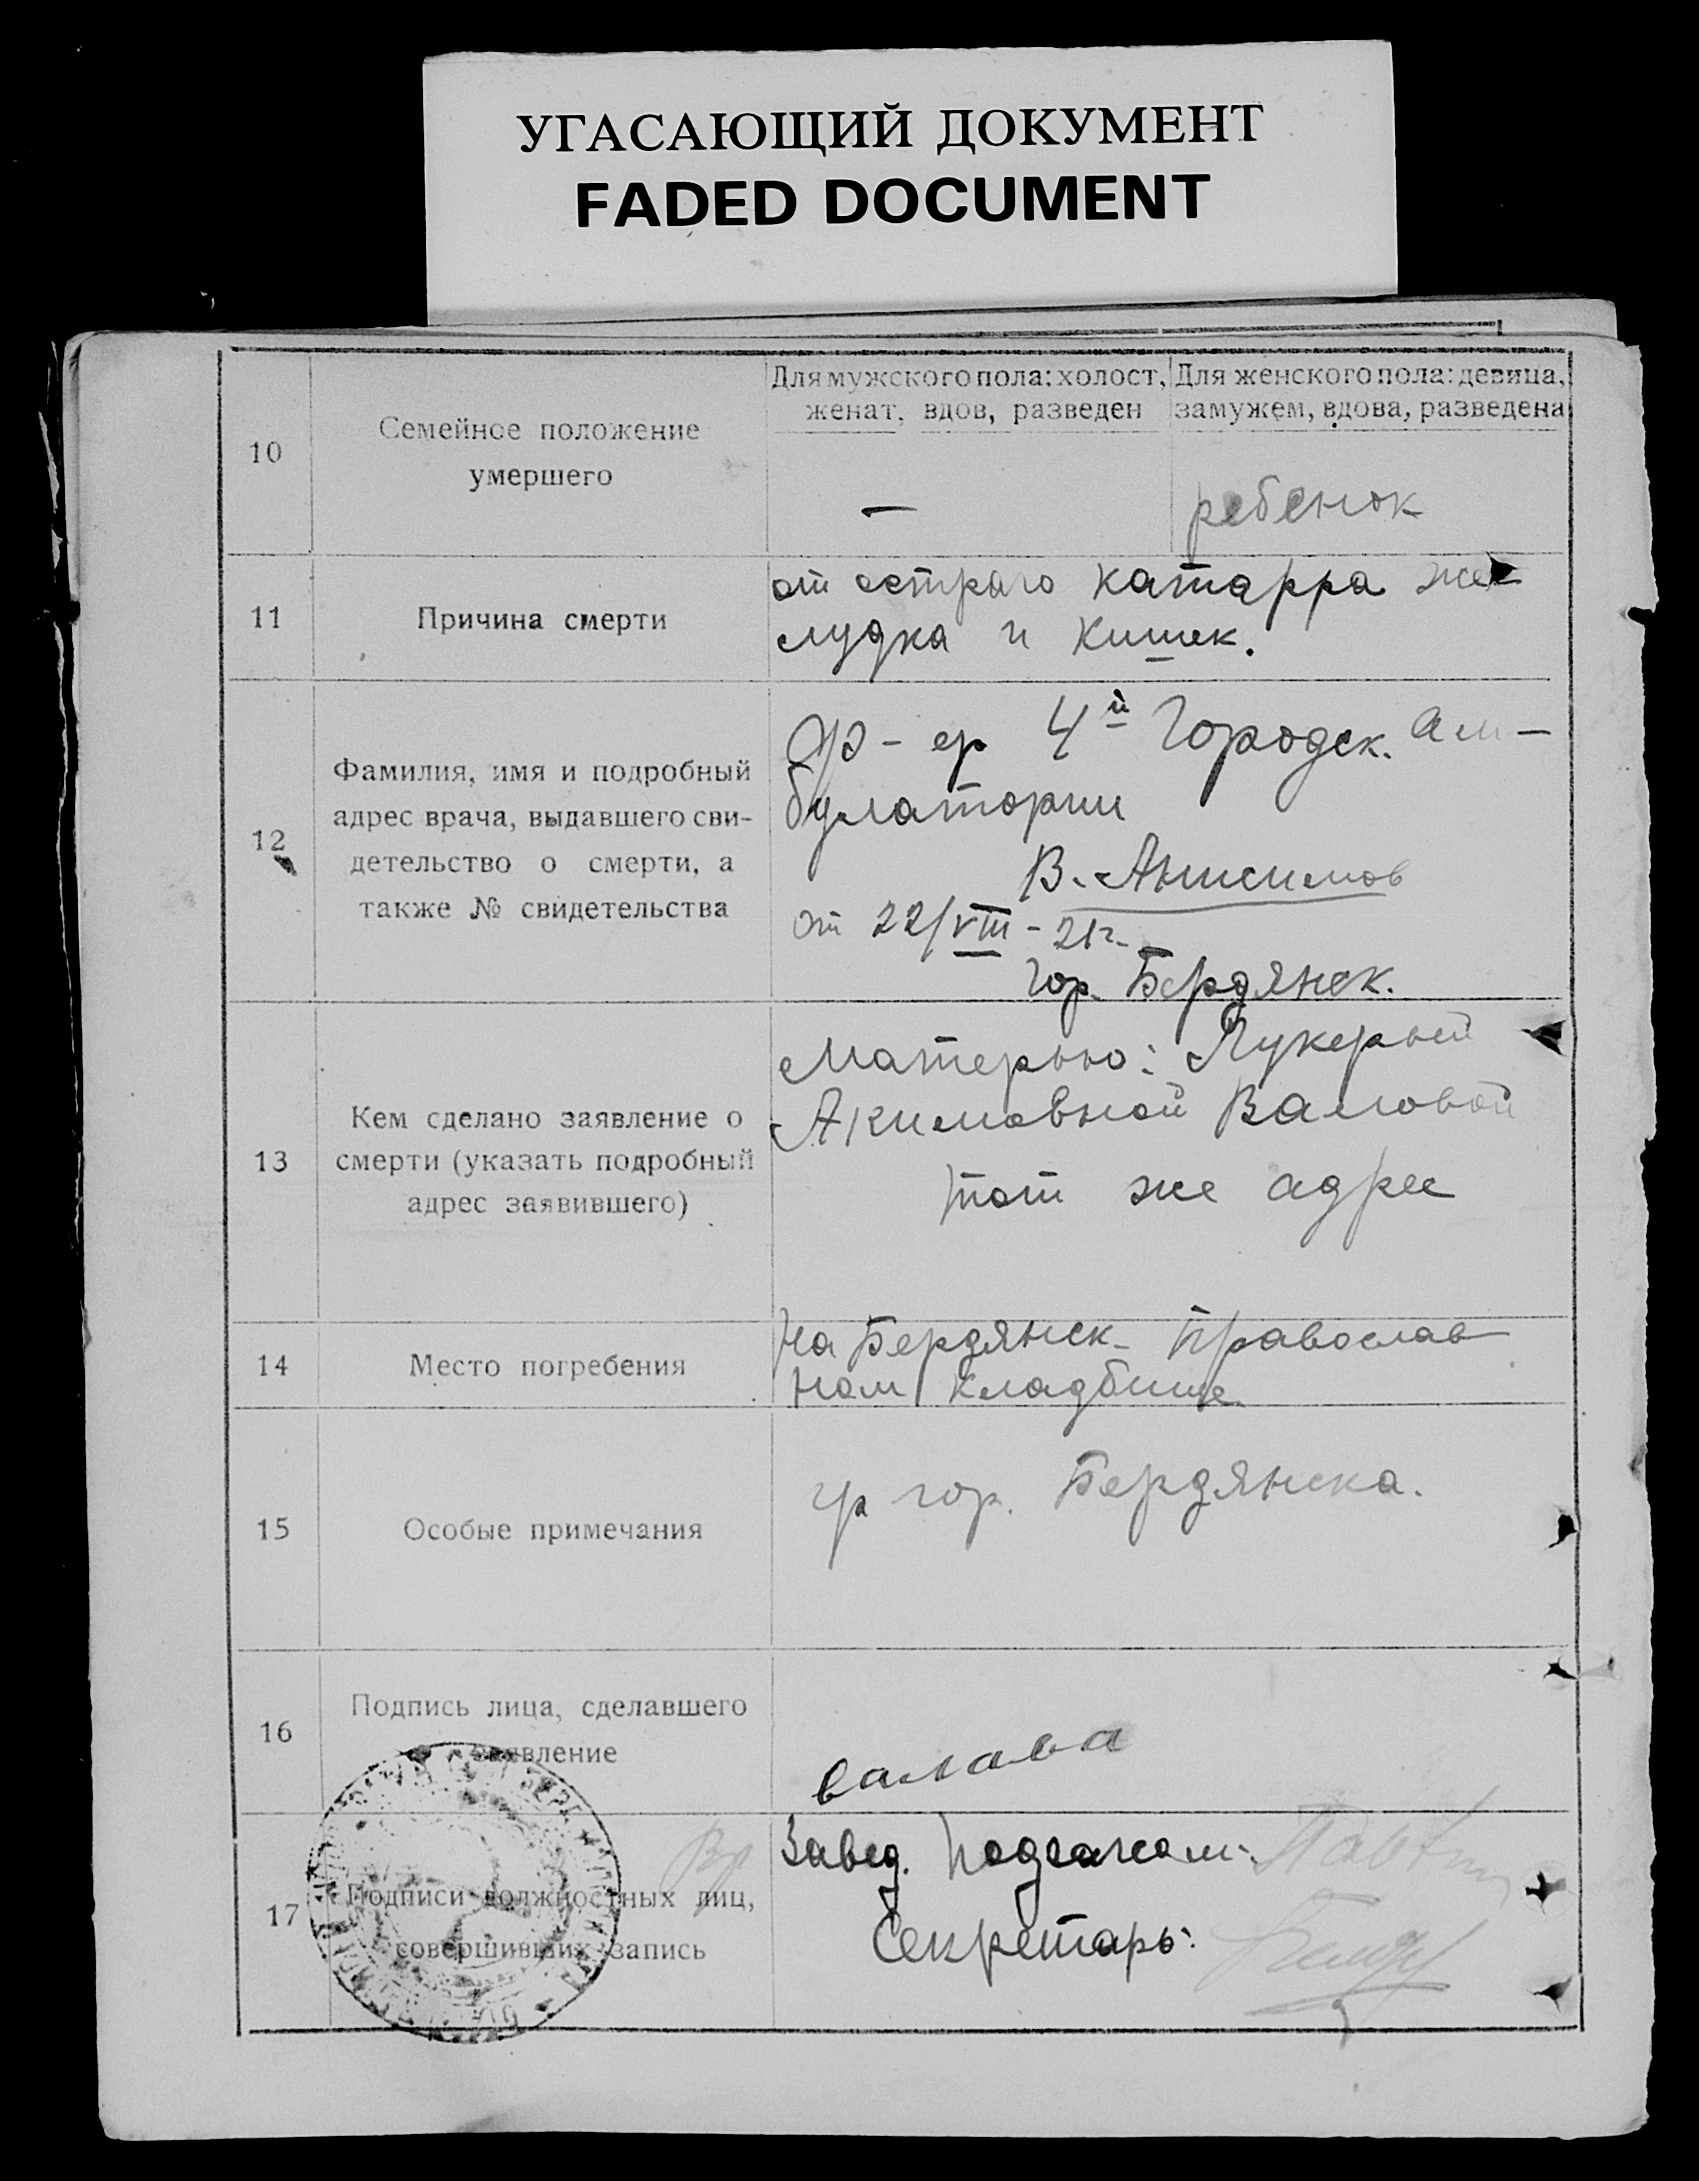 УГАСАЮЩИЙ ДОКУМЕНТ
FADED DOCUMENT
10
Семейное положение
умершего
Для мужского пола: холост,
женат, вдов, разведен
—
Для женского пола: девица,
замужем, вдова, разведена
ребенок
11
Причина смерти
от острого катарра же-
лудка и кишек.
12
Фамилия, имя и подробный
адрес врача, выдавшего сви-
детельство о смерти, а
также № свидетельства
Ф-ер 4й Городск. Ам-
булатории
В. Анисимов
от 22/VIII - 21г.
гор. Бердянск.
13
Кем сделано заявление о
смерти (указать подробный
адрес заявившего)
Матерью: Лукерьей
Акимовной Валовой
тот же адрес
14
Место погребения
На Бердянск. Православ
ном кладбище
15
Особые примечания
гр гор. Бердянска.
16
Подпись лица, сделавшего
заявление
валава
17
Подписи должностных лиц,
совершивших запись
Вр
Завед. Подзагсом:
Секретарь: